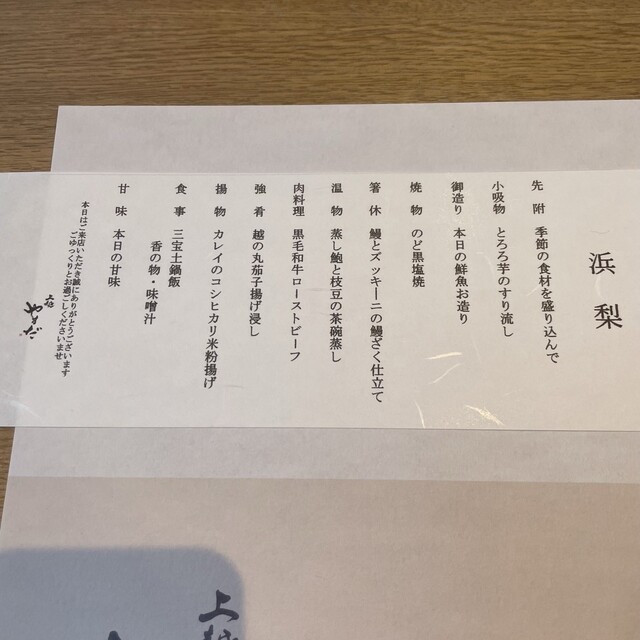 浜梨
先附 季節の食材を盛り込んで
小吸物 とろろ芋のすり流し
御造り 本日の鮮魚お造り
焼物 のど黒塩焼
箸休 鰻とズッキーニの鰻ざく仕立て
温物 蒸し鮑と枝豆の茶碗蒸し
肉料理 黒毛和牛ローストビーフ
強肴 越の丸茄子揚げ浸し
揚物 カレイのコシヒカリ米粉揚げ
食事 三宝土鍋飯
香の物・味噌汁
甘味 本日の甘味
本日はご来店いただき誠にありがとうございます
ごゆっくりとお過ごしくださいませ
上越
やまだ
上越